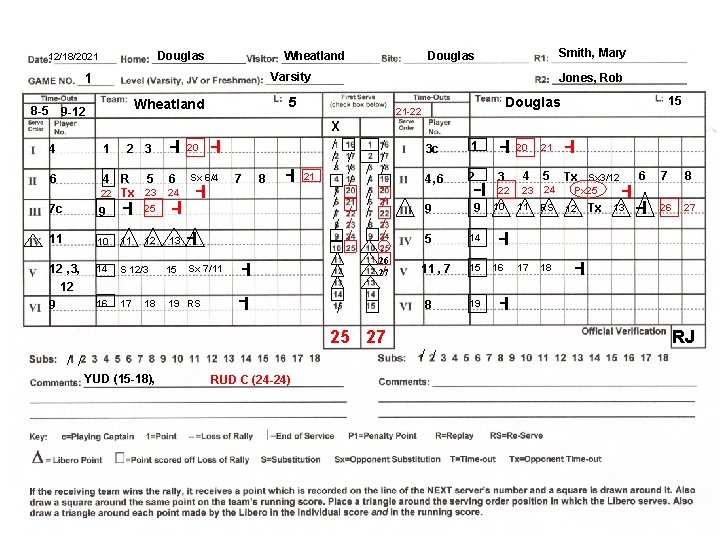 Date: 12/18/2021 Home: Douglas Visitor: Wheatland Site: Douglas R1: Smith, Mary
GAME NO. 1 Level (Varsity, JV or Freshmen): Varsity R2: Jones, Rob
Time-Outs 8-5 9-12 Team: Wheatland L: 5 First Serve (check box below) X Time-Outs 21-22 Team: Douglas L: 15
Serve Order Player No. Serve Order Player No.
I 4 1 2 3 20 I 3c 1 20 21
II 6 4 R 5 6 Sx 6/4 7 8 21 II 4,6 2 3 4 5 Tx Sx3/12 6 7 8
22 Tx 23 24 22 23 24 Px25
III 7c 9 25 III 9 9 10 11 RS 12 Tx 13 26 27
IV 11 10 11 12 13 IV 5 14
V 12 ,3, 12 14 S 12/3 15 Sx 7/11 V 11 , 7 15 16 17 18
VI 9 16 17 18 19 RS VI 8 19
26
27
25 27 Official Verification RJ
Subs: 1 2 3 4 5 6 7 8 9 10 11 12 13 14 15 16 17 18 Subs: 1 2 3 4 5 6 7 8 9 10 11 12 13 14 15 16 17 18
Comments: YUD (15-18), RUD C (24-24) Comments:
Key: c=Playing Captain 1=Point –=Loss of Rally |=End of Service P1=Penalty Point R=Replay RS=Re-Serve
Δ=Libero Point □=Point scored off Loss of Rally S=Substitution Sx=Opponent Substitution T=Time-out Tx=Opponent Time-out
If the receiving team wins the rally, it receives a point which is recorded on the line of the NEXT server's number and a square is drawn around it. Also
draw a square around the same point on the team's running score. Place a triangle around the serving order position in which the Libero serves. Also
draw a triangle around each point made by the Libero in the individual score and in the running score.